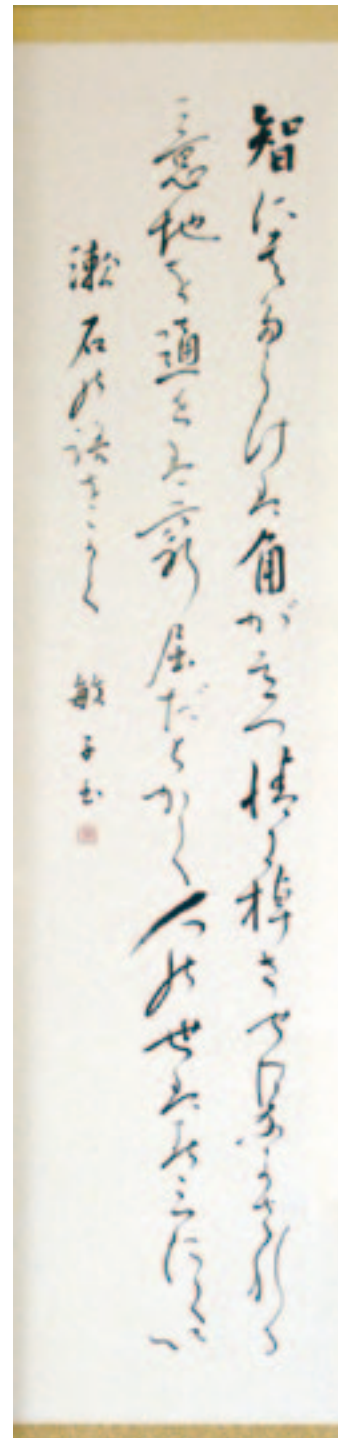 智にはたらけば角が立つ情に棹させば流される
意地を通せば窮屈だとかく人の世は住みにくい
漱石の語をかく 敏子書